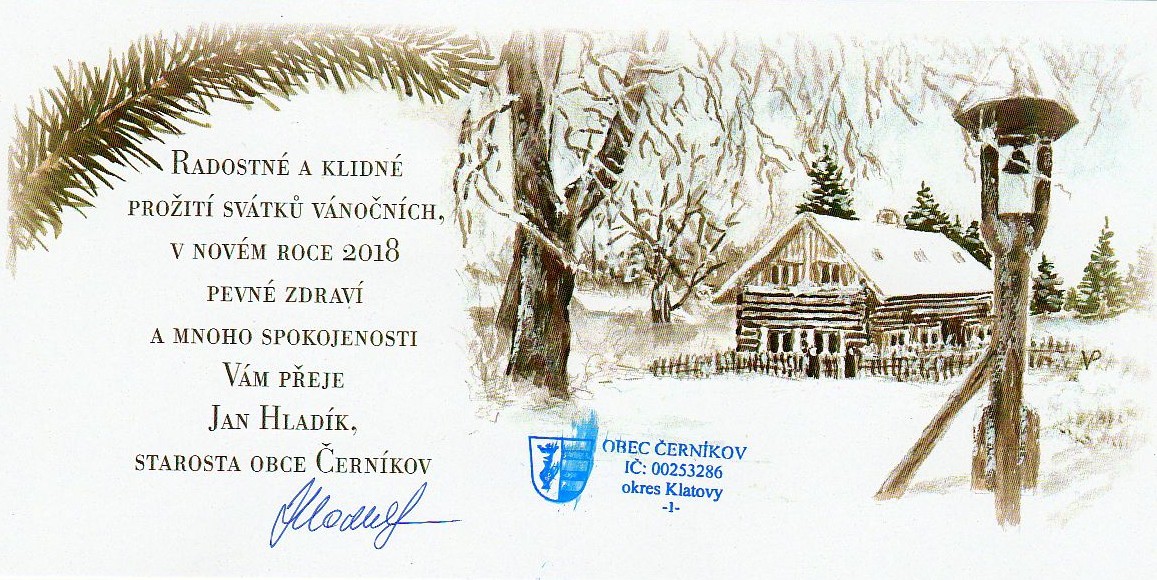 Radostné a klidné
prožití svátků vánočních,
v novém roce 2018
pevné zdraví
a mnoho spokojenosti
Vám přeje
Jan Hladík,
starosta obce Černíkov
OBEC ČERNÍKOV
IČ: 00253286
okres Klatovy
-1-
VP